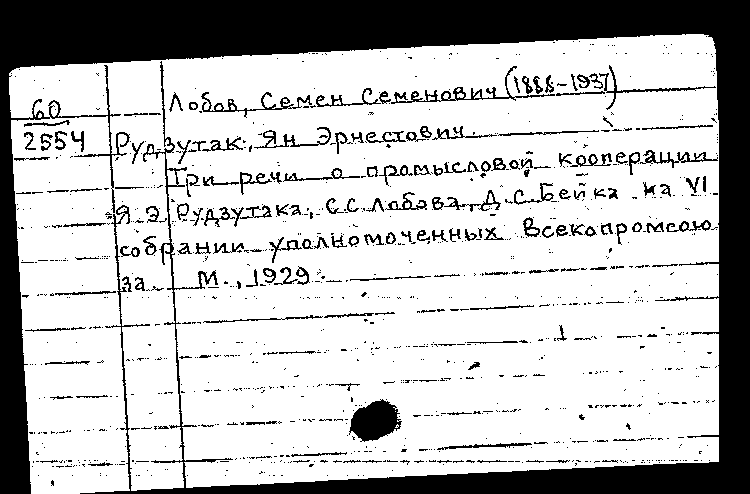 Лобов, Семен Семенович (1888-1937)
60
2554
Рудзутак, Ян Эрнестович.
Три речи о промысловой кооперации
Я.Э. Рудзутака, С.С. Лобова, Д.С. Бейка на VI
собрании уполномоченных Всекопромсою
за. М., 1929.